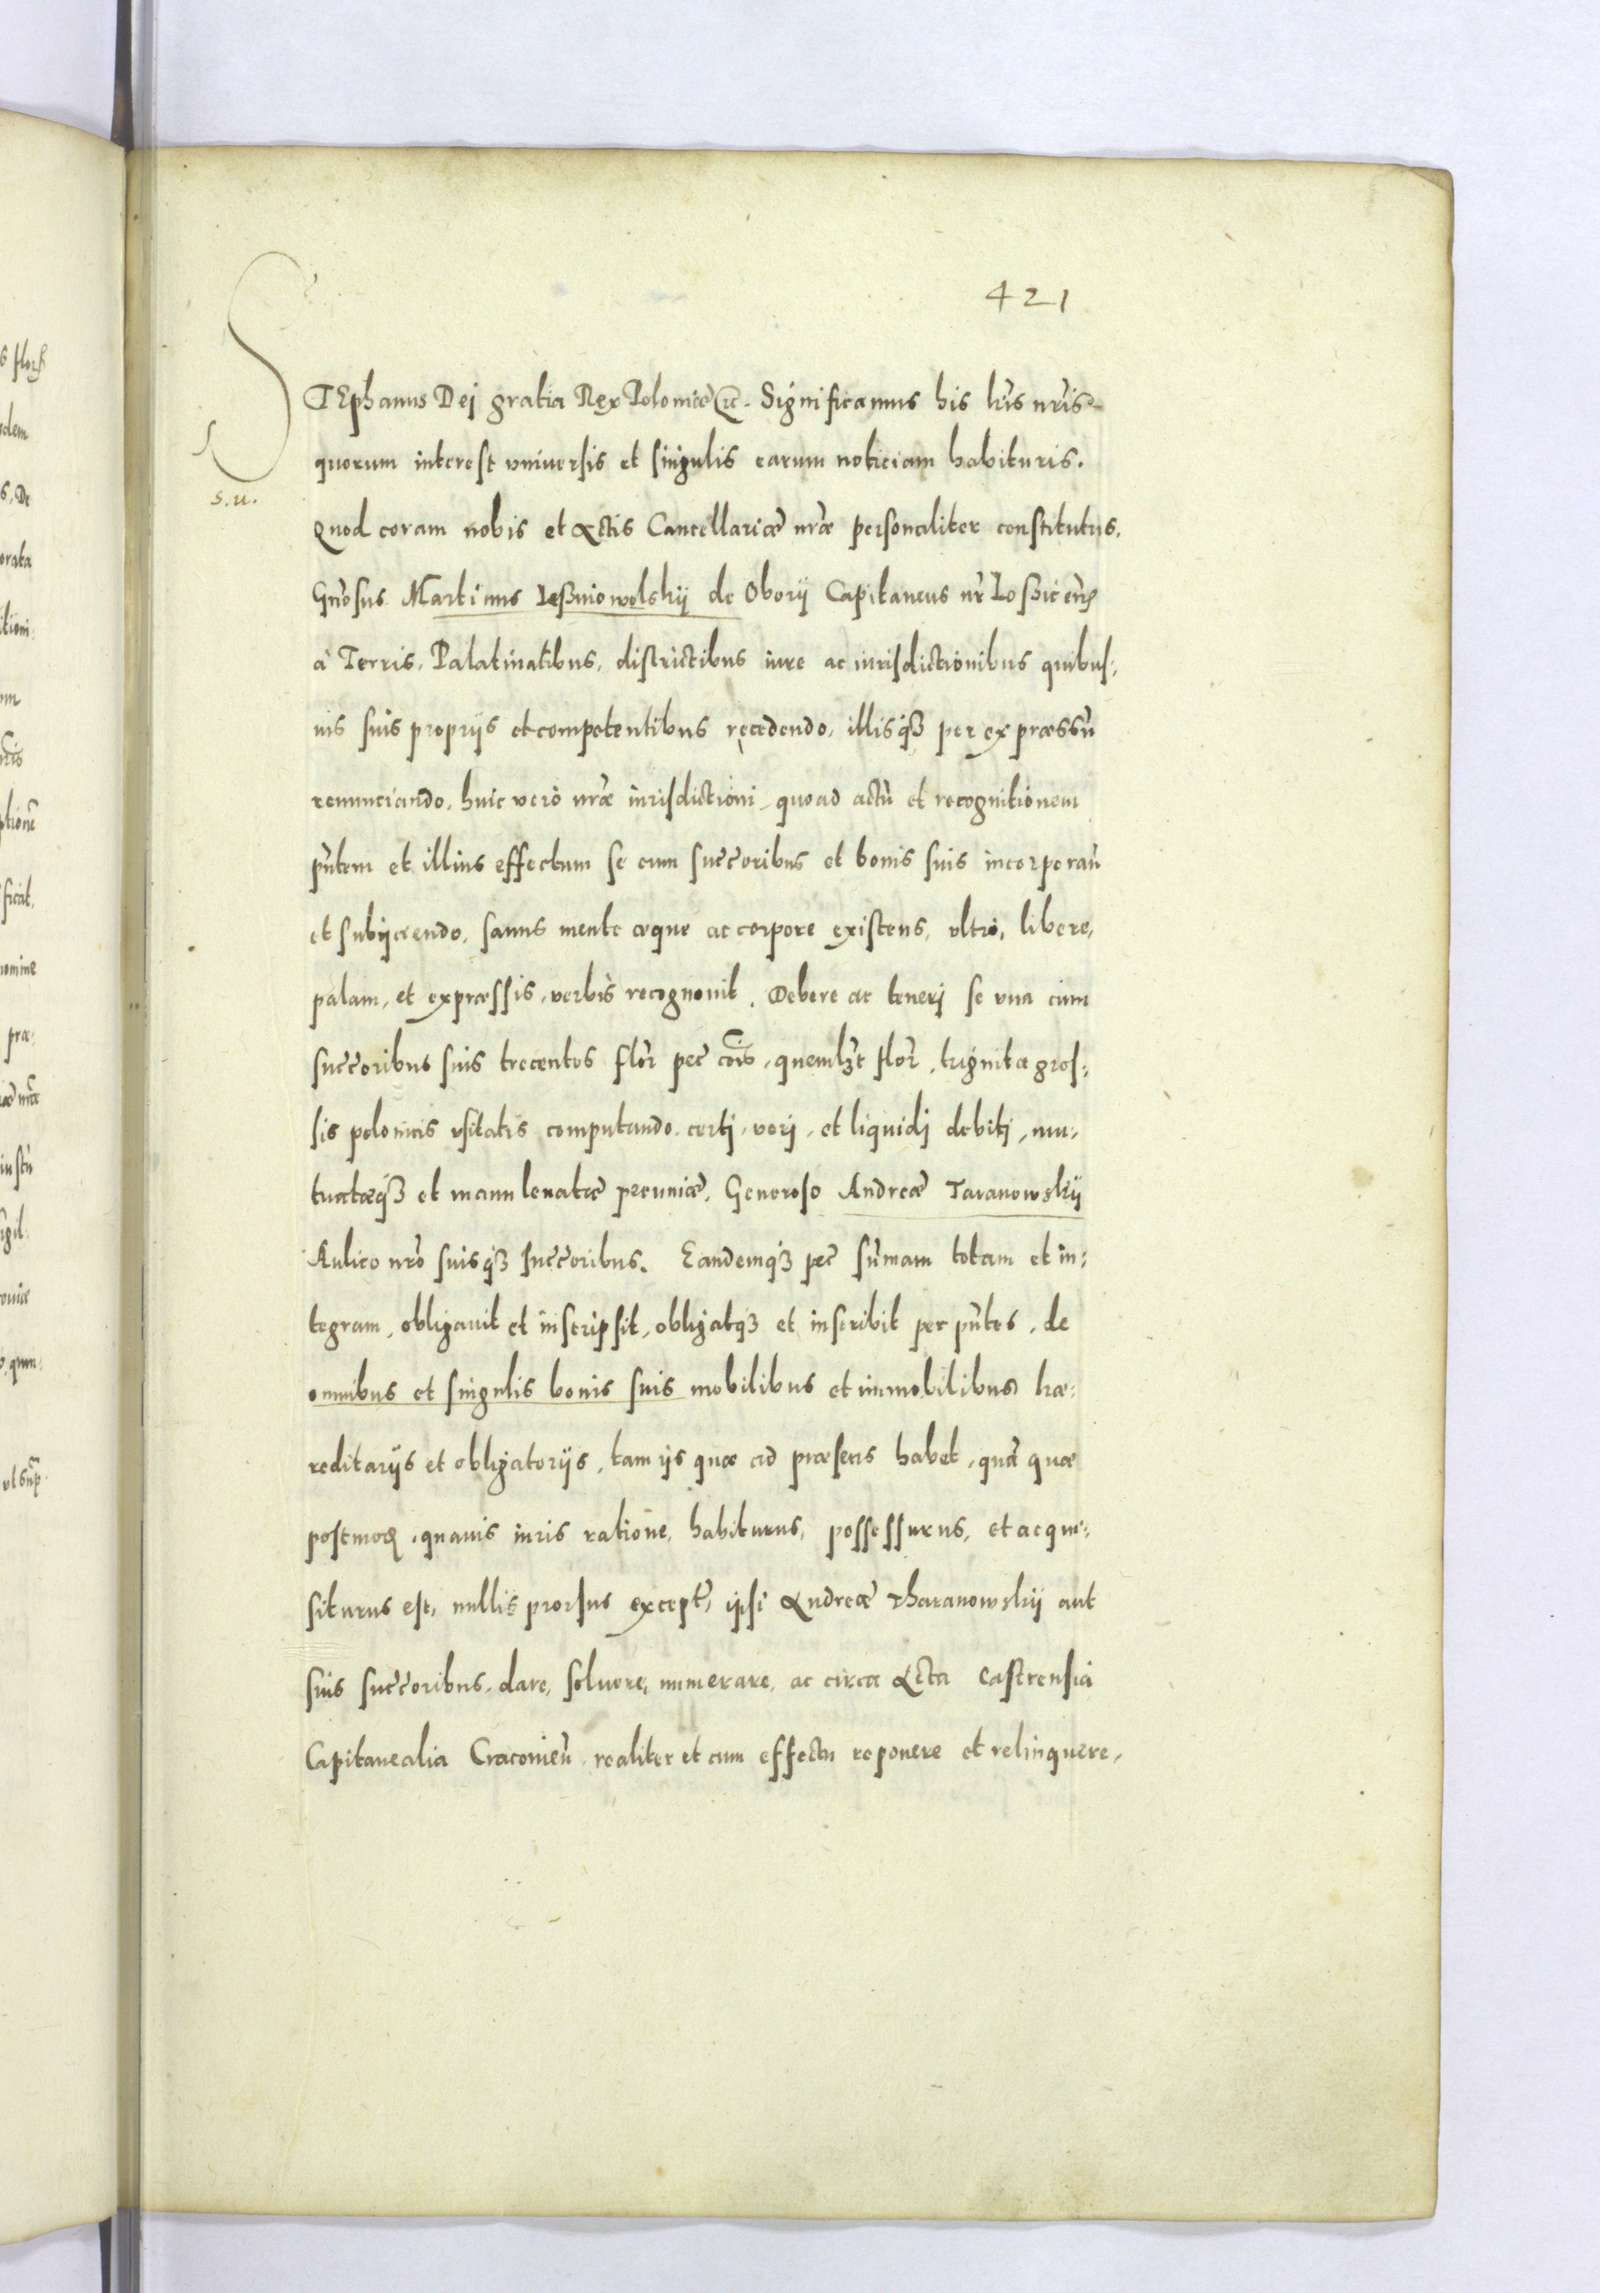 421
STEphanus Dej gratia Rex Poloniæ etc. Significamus his lr̃is nr̃is
quorum interest vniuersis et singulis earum noticiam habituris.
s.u.
Quod coram nobis et Actis Cancellariæ nr̃æ personaliter constitutus.
Gñosus Martinus Leßniowolskij de Oborij Capitaneus nr̃ Losicen̄
à Terris, Palatinatibus, districtibus iure ac iurisdictionibus quibus,
uis suis proprijs et competentibus recedendo, illisq3 per expræssũ
renunciando, huic verò nr̃æ iurisdictioni, quoad actũ et recognitionem
pñtem et illius effectum se cum succ̃oribus et bonis suis incorporañ
et subijciendo, sanus mente æque ac corpore existens, vltrò, libere,
palam, et expræssis, verbis recognouit. Debere ac tenerj se vna cum
succ̃oribus suis trecentos flor̃ pec̃ cõis, quemlzt flor̃, triginta gros,
sis polonicis vsitatis computando certj, verj, et liquidj debitj, mu,
tuatæq3 et manuleuatæ pecuniæ, Generoso Andreæ Taranowskij
Aulico nr̃o suisq3 succ̃oribus. Eandemq3 pec̃ sum̃am totam et in,
tegram, obligauit et inscripsit, obligatq3 et inscribit per pñtes, de
omnibus et singulis bonis suis mobilibus et immobilibus hæ,
reditarijs et obligatorijs, tam ijs quæ ad præsens habet, quã quæ
postmod̃, quauis iuris ratione, habiturus, possessurus, et acqui,
siturus est, nullis prorsus except̃, ipsi Andreæ Tharanowskij aut
suis succ̃oribus, dare, soluere, numerare, ac circa Acta Castrensia
Capitanealia Cracouieñ. realiter et cum effectu reponere et relinquere,